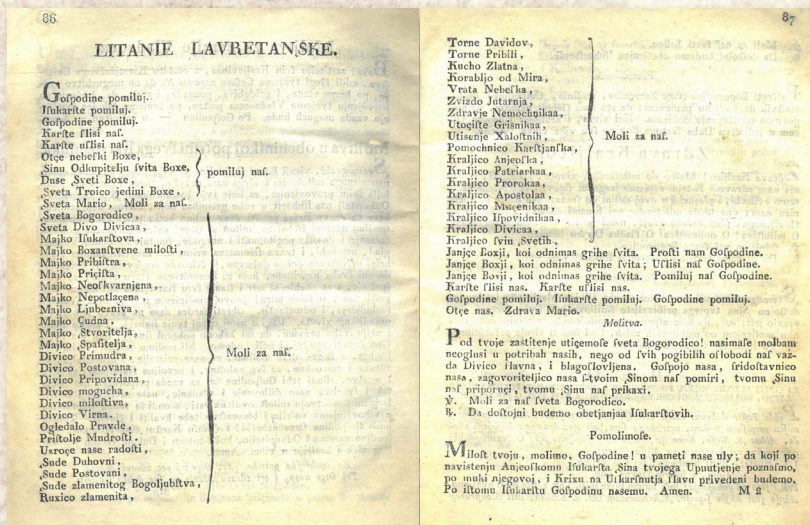 86
LITANIE LAVRETANSKE.
Goſpodine pomiluj.
Iſukarſte pomiluj.
Goſpodine pomiluj.
Karſte ſliſi naſ.
Karſte uſliſi naſ.
Otçe nebeſki Boxe,
Sinu Odkupitelju ſvita Boxe,
Duse Sveti Boxe,
Sveta Troico jedini Boxe,
pomiluj naſ.
Sveta Mario, Moli za naſ.
Sveta Bogorodico,
Sveta Divo Divicaa,
Majko Iſukarſtova,
Majko Boxanſtvene miloſti,
Majko Pribiſtra,
Majko Priçiſta,
Majko Neoſkvarnjena,
Majko Nepotlaçena,
Majko Ljubezniva,
Majko Çudna,
Majko Stvoritelja,
Majko Spaſitelja,
Divico Primudra,
Divico Postovana,
Divico Pripovidana,
Divico mogucha,
Divico miloſtiva,
Divico Virna.
Ogledalo Pravde,
Priſtolje Mudroſti.
Uzroçe nase radoſti,
Sude Duhovni,
Sude Postovani,
Sude zlamenitog Bogoljubſtva,
Ruxico zlamenita,
Moli za naſ.
87
Torne Davidov,
Torne Pribili,
Kucho Zlatna,
Korabljo od Mira,
Vrata Nebeſka,
Zvizdo Jutarnja,
Zdravje Nemochnikaa,
Utoçiſte Grisnikaa,
Utisenje Xaloſtnih,
Pomochnico Karſtjanſka,
Kraljico Anjeoſka,
Kraljico Patriarkaa,
Kraljico Prorokaa,
Kraljico Apostolaa,
Kraljico Muçenikaa,
Kraljico Iſpovidnikaa,
Kraljico Divicaa,
Kraljico ſviu Svetih,
Moli za naſ.
Janjçe Boxji, koi odnimas grihe ſvita. Proſti nam Goſpodine.
Janjçe Boxji, koi odnimas grihe ſvita; Uſlisi naſ Goſpodine.
Janjçe Boxji, koi odnimas grihe ſvita. Pomiluj naſ Goſpodine.
Karſte ſlisi nas. Karſte uſlisi nas.
Goſpodine pomiluj. Iſukarſte pomiluj. Goſpodine pomiluj.
Otçe nas. Zdrava Mario.
Molitva.
Pod tvoje zaſtitenje utiçemoſe ſveta Bogorodico! nasimaſe molbam
neogluſi u potribah nasih, nego od ſvih pogibilih oſlobodi naſ vaz-
da Divico ſlavna, i blagoſlovljena. Goſpojo nasa, ſridoſtavnico
nasa, zagovoriteljico nasa ſ-tvoim Sinom naſ pomiri, tvomu Sinu
naſ priporuçi, tvomu Sinu naſ prikaxi.
℣. Moli za naſ ſveta Bogorodico.
℟. Da doſtojni budemo obetjanjaa Iſukarſtovih.
Pomolimoſe.
Miloſt tvoju, molimo, Goſpodine! u pameti nase uly; da koji po
naviſtenju Anjeoſkomu Iſukarſta Sina tvojega Upuutjenje poznaſmo,
po muki njegovoj, i Krixu na Uſkarſnutja ſlavu privedeni budemo,
Po iſtomu Iſukarſtu Goſpodinu nasemu. Amen.
M 2